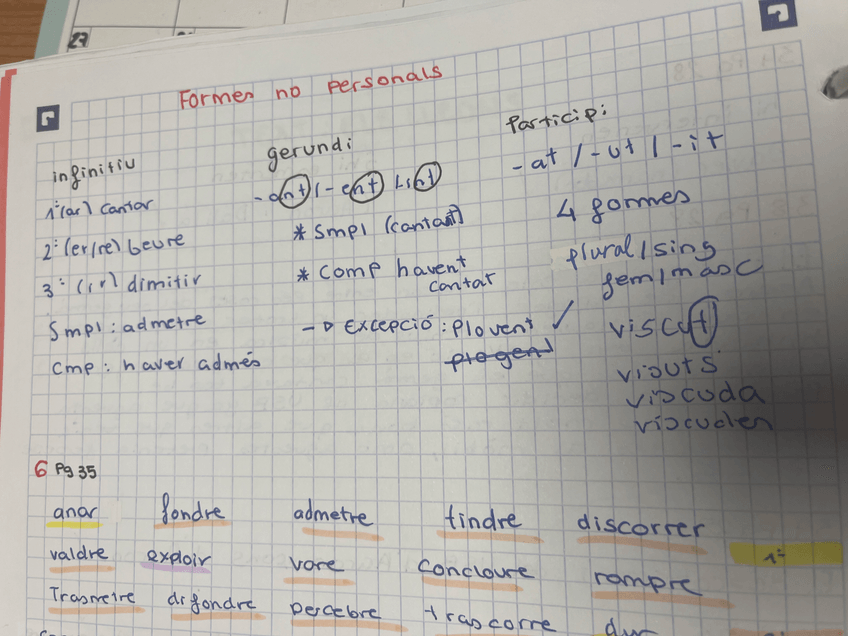 27
Formes no personals
infinitiu
1ª (ar) cantar
2ª (er/re) beure
3ª (ir) dimitir
Smpl: admetre
Cmp: haver admés
gerundi
-ant / -ent / -int
* Smpl (cantant)
* Comp havent
cantat
-> Excepció: Plovent ✓
plogent
Particip:
-at / -ut / -it
4 formes
plural / sing
fem / masc
viscut
viscuts
viscuda
viscudes
6 Pg 35
anar fondre admetre tindre discorrer
valdre exploir vore concloure rompre 1ª
Trasmetre difondre percebre trascorre dur